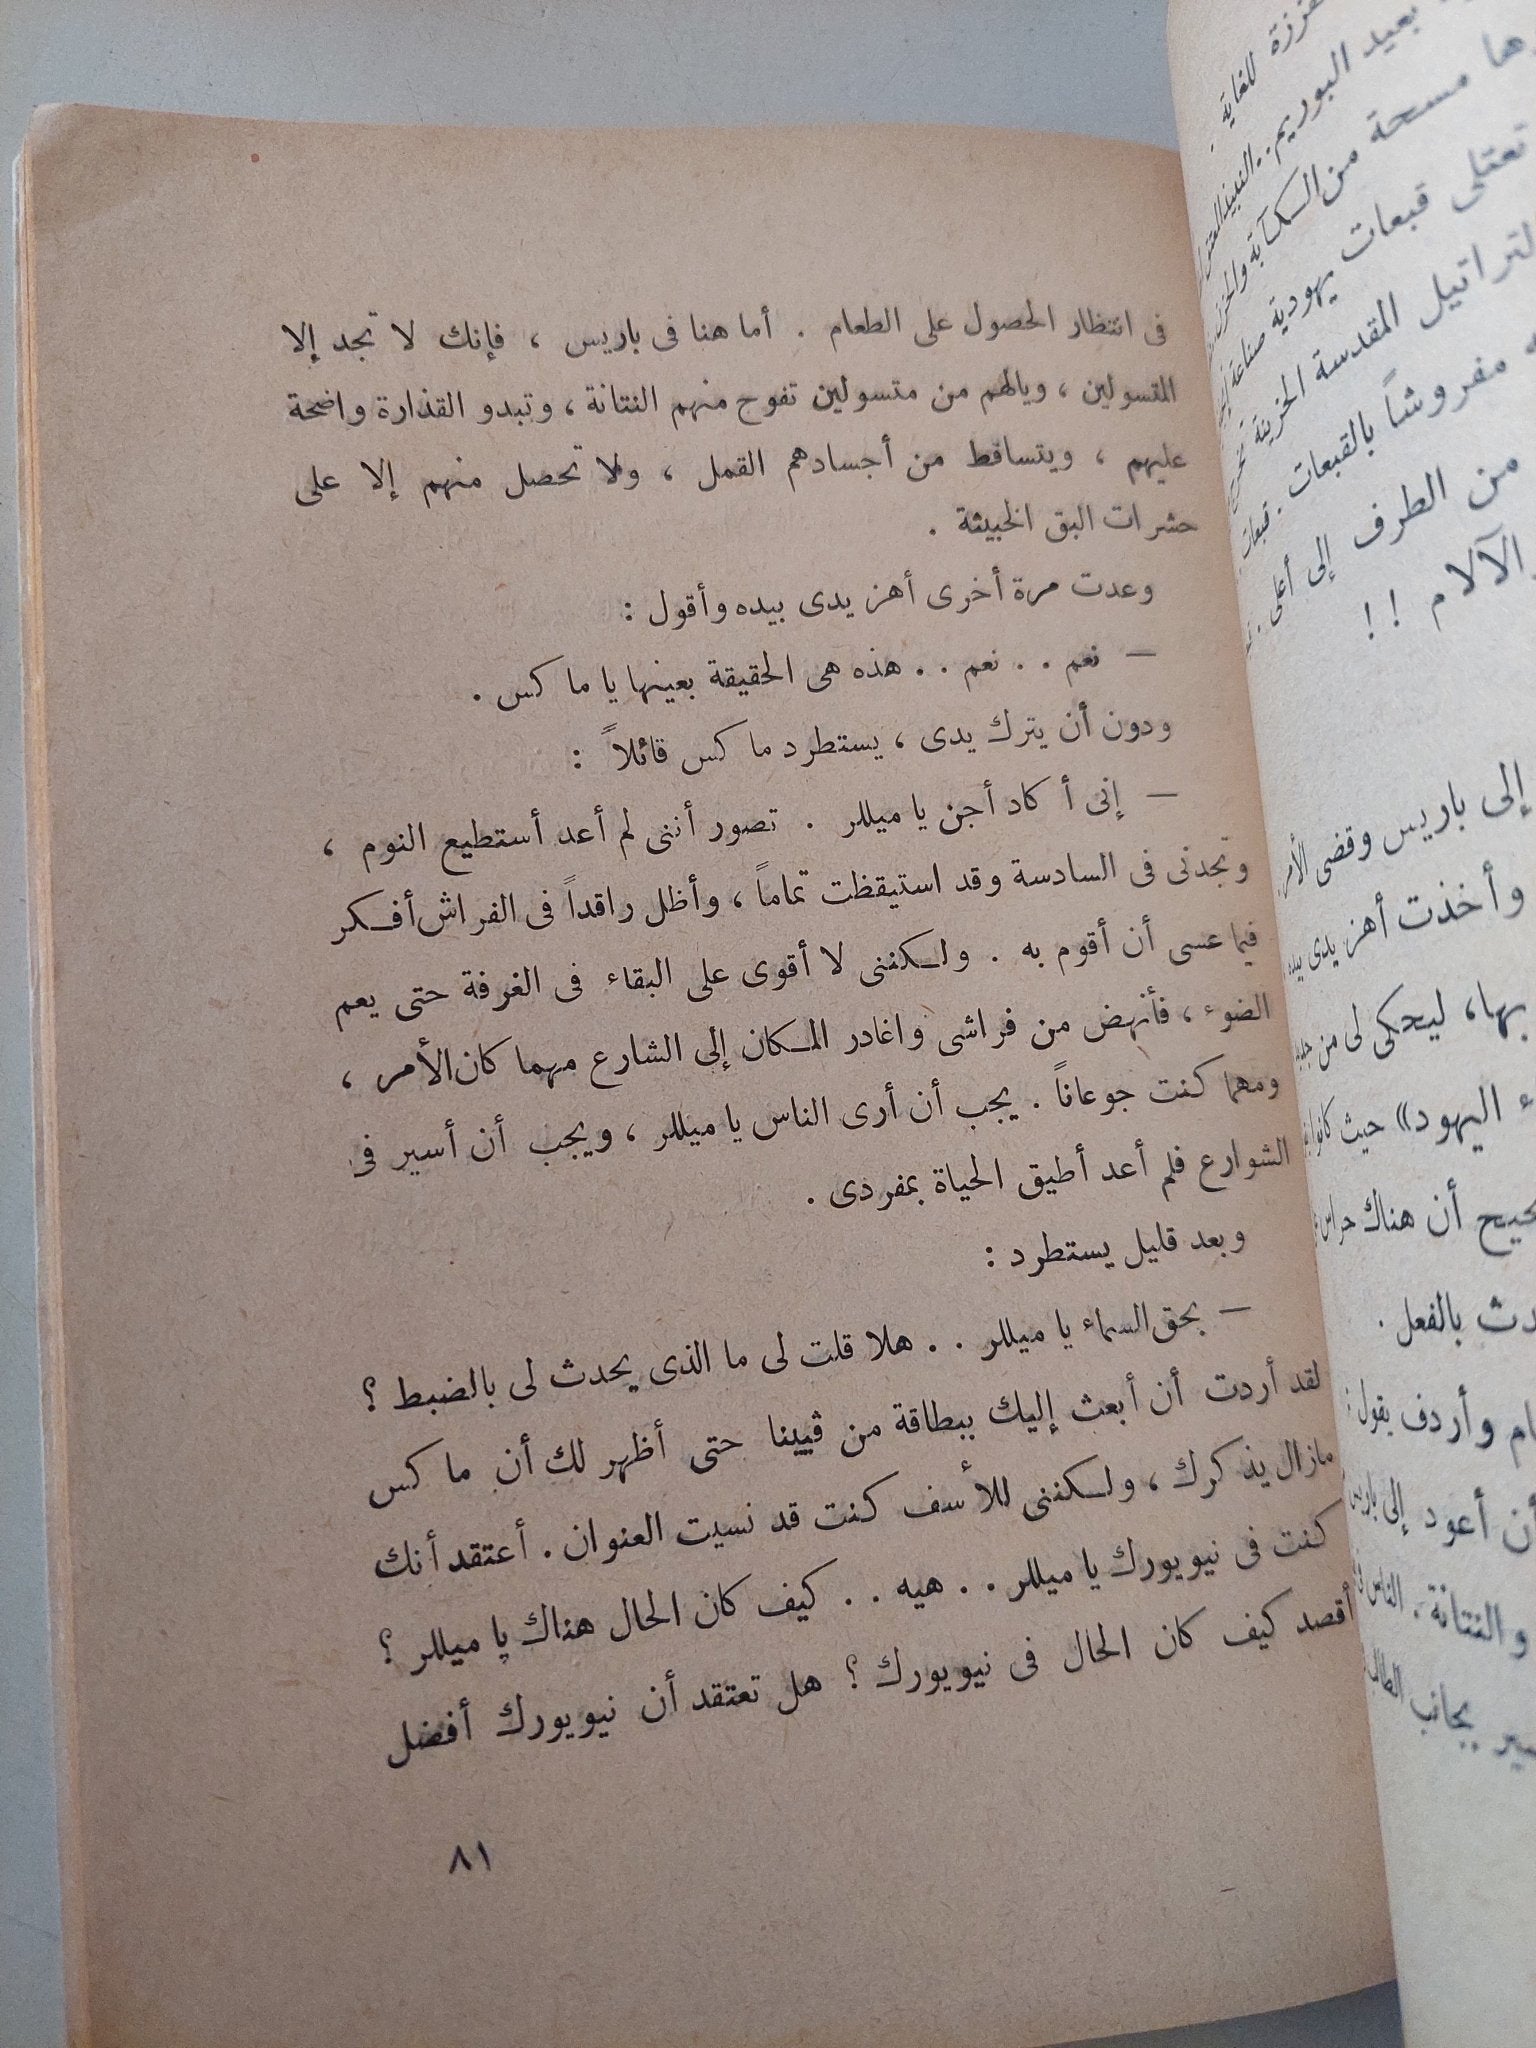 فى انتظار الحصول على الطعام . أما هنا فى باريس ، فإنك لا تجد إلا
المتسولين ، ويالهم من متسولين تفوح منهم النتانة ، وتبدو القذارة واضحة
عليهم ، ويتساقط من أجسادهم القمل ، ولا تحصل منهم إلا على
حشرات البق الخبيثة .
وعدت مرة أخرى أهز يدى بيده وأقول :
— نعم . . نعم . . هذه هى الحقيقة بعينها يا ماكس .
ودون أن يترك يدى ، يستطرد ماكس قائلاً :
— إنى أكاد أجن يا ميللر . تصور أننى لم أعد أستطيع النوم ،
وتجدنى فى السادسة وقد استيقظت تماماً ، وأظل راقداً فى الفراش أفكر
فيما عسى أن أقوم به . ولكننى لا أقوى على البقاء فى الغرفة حتى يعم
الضوء ، فأنهض من فراشى واغادر المكان إلى الشارع مهما كان الأمر ،
ومهما كنت جوعاناً . يجب أن أرى الناس يا ميللر ، ويجب أن أسير فى
الشوارع فلم أعد أطيق الحياة بمفردى .
وبعد قليل يستطرد :
— بحق السماء يا ميللر . . هلا قلت لى ما الذى يحدث لى بالضبط ؟
لقد أردت أن أبعث إليك ببطاقة من ڤيينا حتى أظهر لك أن ماكس
مازال يذكرك ، ولكننى للأسف كنت قد نسيت العنوان . أعتقد أنك
كنت فى نيويورك يا ميللر . . هيه . . كيف كان الحال هناك يا ميللر ؟
أقصد كيف كان الحال فى نيويورك ؟ هل تعتقد أن نيويورك أفضل
٨١
للغاية .
بعيد البوريم . . النبيذ
مسحة من الكآبة والحزن
تعتلى قبعات يهودية صناعة
المقدسة الحزينة
مفروشاً بالقبعات . قبعات
من الطرف إلى أعلى .
الآلام ! !
إلى باريس وقضى الأمر
وأخذت أهز يدى بيده
بها، ليحكى لى من جديد
اليهود» حيث كانوا
أن هناك حراس
بالفعل .
وأردف يقول :
أن أعود إلى باريس
والنتانة . الناس
بجانب